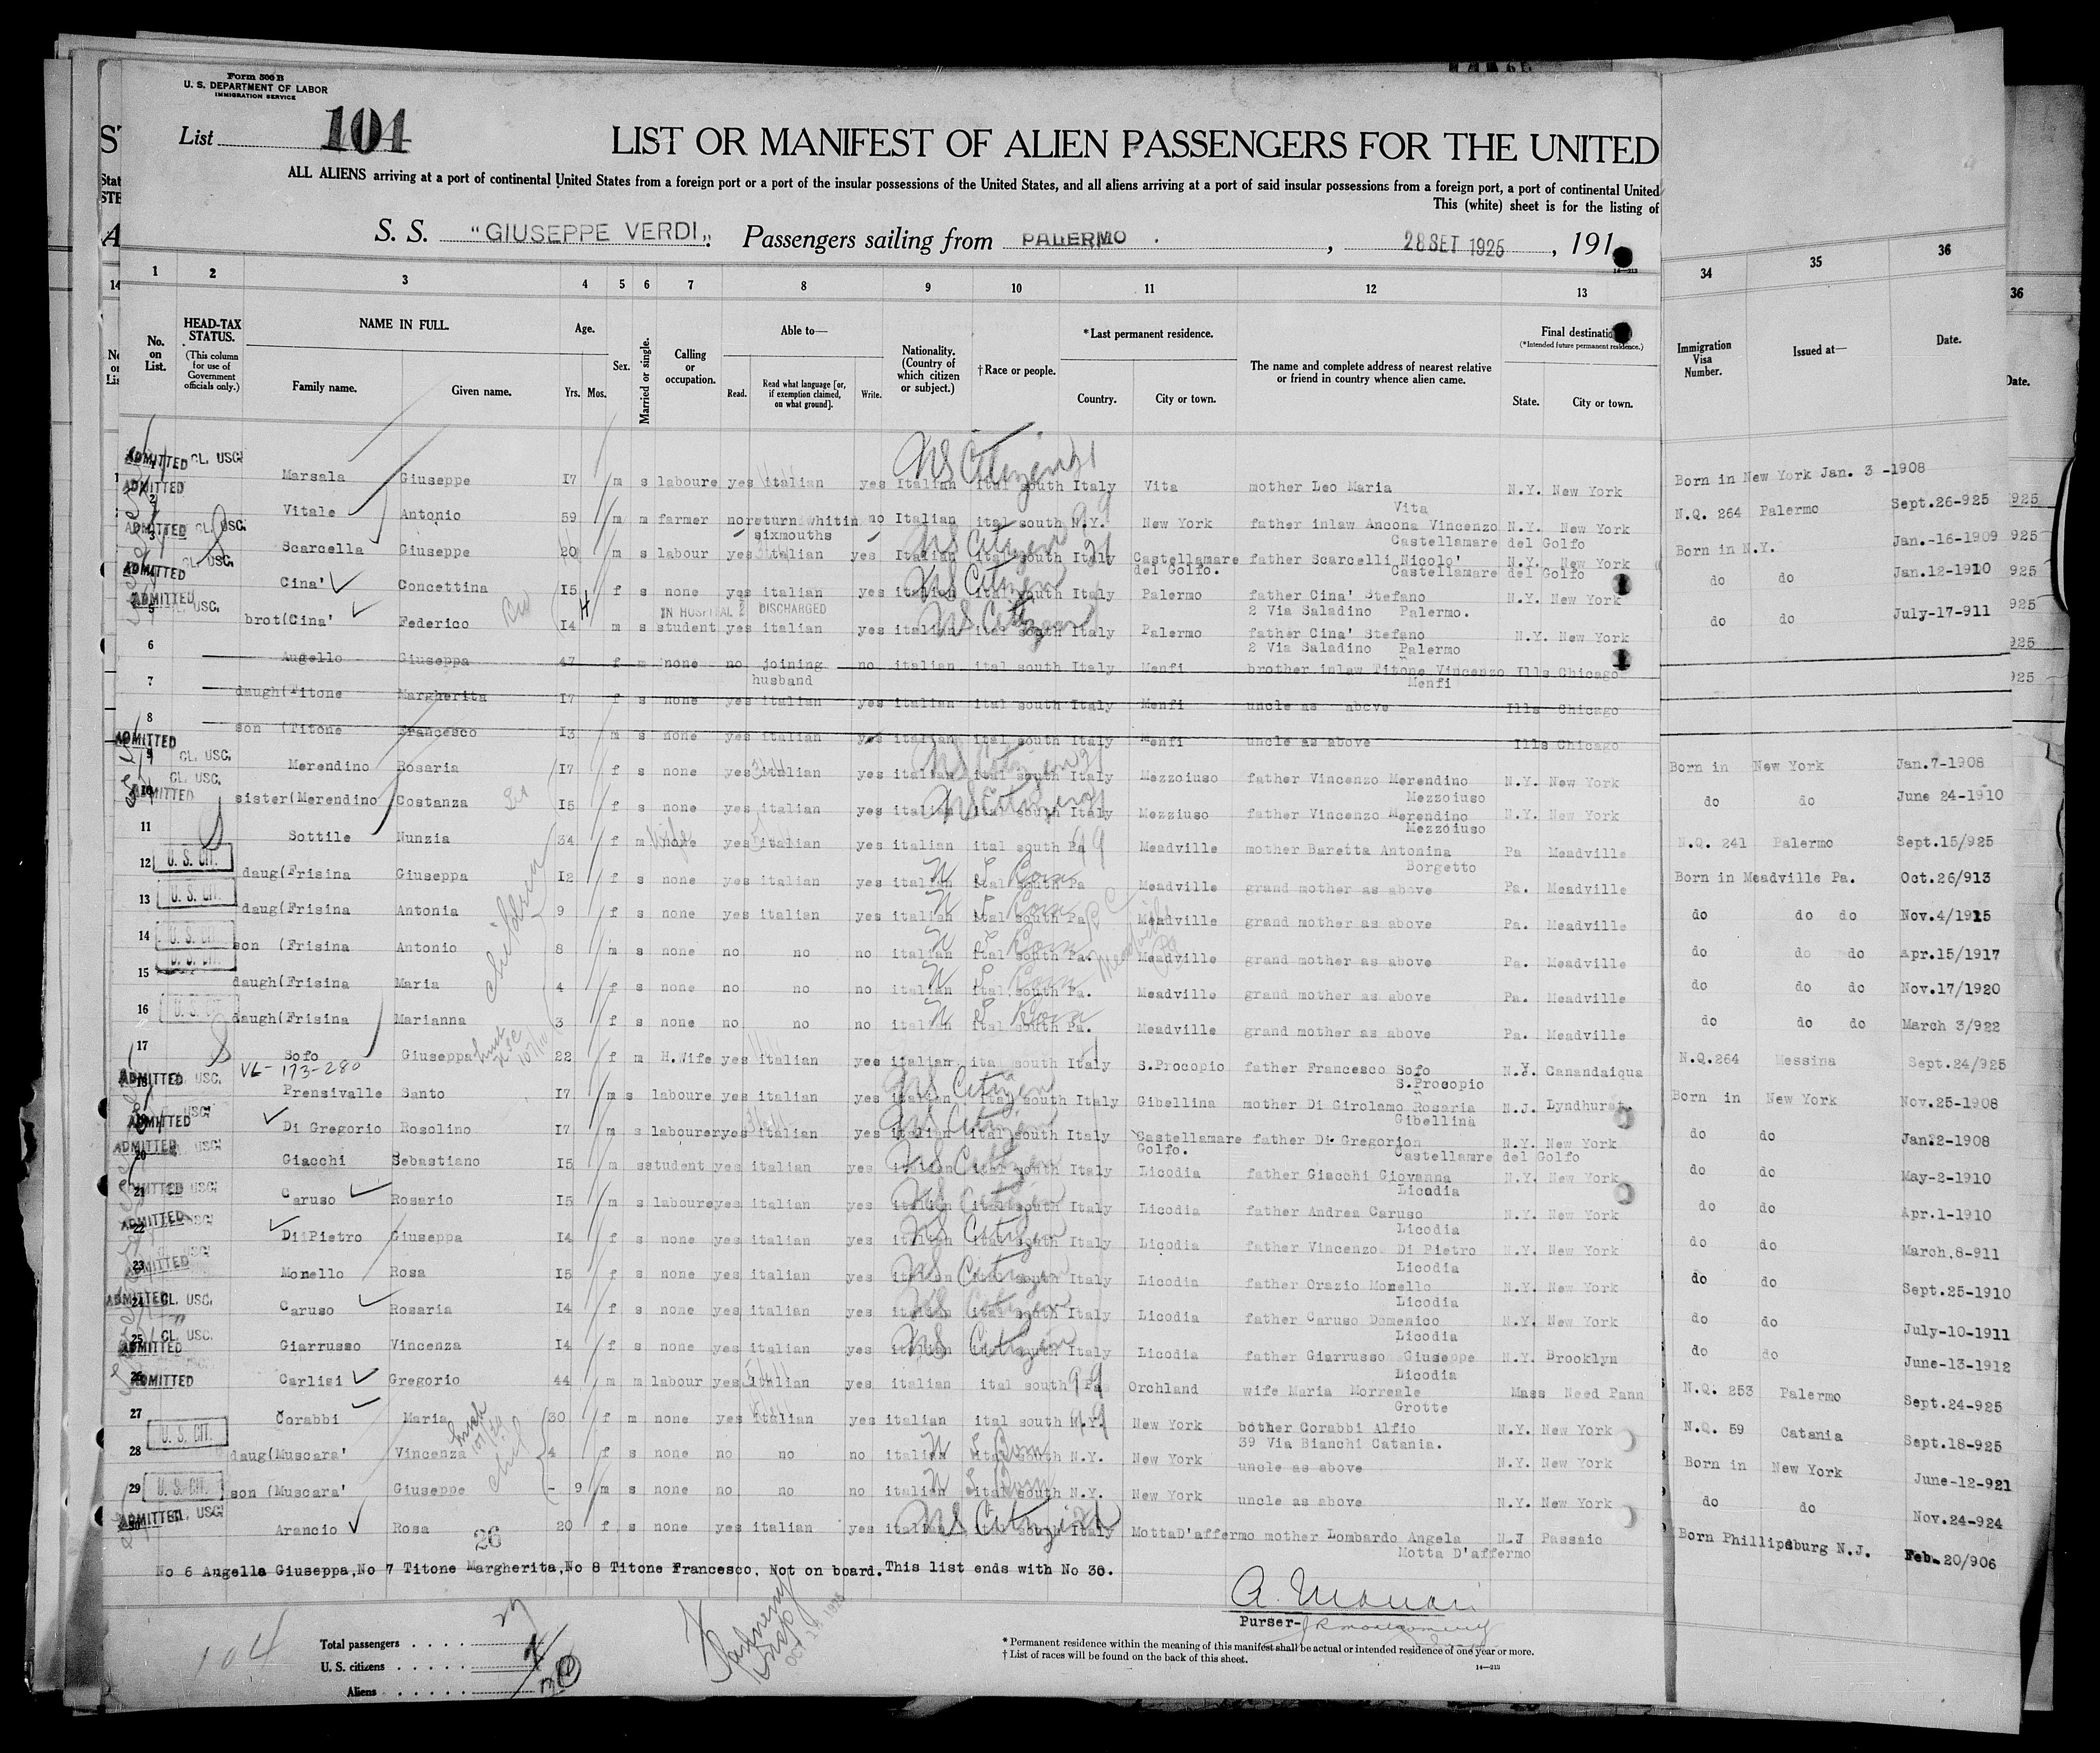 Form 500 B
U. S. DEPARTMENT OF LABOR
IMMIGRATION SERVICE
List 104
LIST OR MANIFEST OF ALIEN PASSENGERS FOR THE UNITED
ALL ALIENS arriving at a port of continental United States from a foreign port or a port of the insular possessions of the United States, and all aliens arriving at a port of said insular possessions from a foreign port, a port of continental United
This (white) sheet is for the listing of
S. S. "GIUSEPPE VERDI" Passengers sailing from PALERMO , 28 SET 1925 , 191
1 2 3 4 5 6 7 8 9 10 11 12 13 34 35 36
No. on List. HEAD-TAX STATUS. (This column for use of Government officials only.) NAME IN FULL. Family name. Given name. Age. Yrs. Mos. Sex. Married or single. Calling or occupation. Able to— Read. Read what language [or, if exemption claimed, on what ground]. Write. Nationality. (Country of which citizen or subject.) †Race or people. *Last permanent residence. Country. City or town. The name and complete address of nearest relative or friend in country whence alien came. Final destination (*Intended future permanent residence.) State. City or town. Immigration Visa Number. Issued at— Date.
ADMITTED CL. USC. Marsala Giuseppe 17 m s laboure yes italian yes Italian ital south Italy Vita mother Leo Maria N.Y. New York Born in New York Jan. 3 -1908
Vita
ADMITTED 2 Vitale Antonio 59 m m farmer no return whitin no Italian ital south N.Y. New York father inlaw Ancona Vincenzo N.Y. New York N.Q. 264 Palermo Sept.26-925
sixmouths Castellamare del Golfo
ADMITTED 3 CL. USC. Scarcella Giuseppe 20 m s labour yes italian yes Italian ital south Italy Castellamare father Scarcelli Nicolo' N.Y. New York Born in N.Y. Jan.-16-1909
del Golfo. Castellamare del Golfo
ADMITTED CL. USC. Cina' Concettina 15 f s none yes italian yes italian ital south Italy Palermo father Cina' Stefano N.Y. New York do do Jan.12-1910
IN HOSPITAL DISCHARGED 2 Via Saladino Palermo.
ADMITTED 5 USC. brot(Cina' Federico 14 m s student yes italian yes italian ital south Italy Palermo father Cina' Stefano N.Y. New York do do July-17-911
2 Via Saladino Palermo
6 Augello Giuseppa 47 f m none no joining no italian ital south Italy Menfi brother inlaw Titone Vincenzo Ills Chicago
husband Menfi
7 daugh(Titone Margherita 17 f s none yes italian yes italian ital south Italy Menfi uncle as above Ills Chicago
8 son (Titone Francesco 13 m s none yes italian yes italian ital south Italy Menfi uncle as above Ills Chicago
ADMITTED 9 CL. USC. Merendino Rosaria 17 f s none yes italian yes italian ital south Italy Mezzoiuso father Vincenzo Merendino N.Y. New York Born in New York Jan.7-1908
Mezzoiuso
ADMITTED 10 CL. USC. sister(Merendino Costanza 15 f s none yes italian yes italian ital south Italy Mezziuso father Vincenzo Merendino N.Y. New York do do June 24-1910
Mezzoiuso
11 Sottile Nunzia 34 f m none yes italian yes italian ital south Pa Meadville mother Baretta Antonina Pa Meadville N.Q. 241 Palermo Sept.15/925
Borgetto
12 U. S. CIT. daug(Frisina Giuseppa 12 f s none yes italian yes italian ital south Pa Meadville grand mother as above Pa. Meadville Born in Meadville Pa. Oct.26/913
13 U. S. CIT. daug(Frisina Antonia 9 f s none yes italian yes italian ital south Pa Meadville grand mother as above Pa. Meadville do do do Nov.4/1915
14 U. S. CIT. son (Frisina Antonio 8 m s none no no no italian ital south Pa. Meadville grand mother as above Pa. Meadville do do do Apr.15/1917
15 U. S. CIT. daugh(Frisina Maria 4 f s none no no no italian ital south Pa. Meadville grand mother as above Pa. Meadville do do do Nov.17/1920
16 U. S. CIT. daugh(Frisina Marianna 3 f s none no no no italian ital south Pa. Meadville grand mother as above Pa. Meadville do do do March 3/922
17 Sofo Giuseppa 22 f m H.Wife yes italian yes italian ital south Italy S.Procopio father Francesco Sofo N.Y. Canandaiqua N.Q.264 Messina Sept.24/925
VL- 173-280 S.Procopio
ADMITTED 18 USC. Prensivalle Santo 17 m s laboure yes italian yes italian ital south Italy Gibellina mother Di Girolamo Rosaria N.J. Lyndhurst. Born in New York Nov.25-1908
Gibellina
ADMITTED 19 USC Di Gregorio Rosolino 17 m s labourer yes italian yes italian ital south Italy Castellamare father Di Gregorion N.Y. New York do do Jan.2-1908
Golfo. Castellamre del Golfo
ADMITTED 20 USC Giacchi Sebastiano 15 m s student yes italian yes italian ital south Italy Licodia father Giacchi Giovanna N.Y. New York do do May-2-1910
Licodia
ADMITTED 21 USC Caruso Rosario 15 m s laboure yes italian yes italian ital south Italy Licodia father Andrea Caruso N.Y. New York do do Apr.1-1910
Licodia
ADMITTED 22 USC DiiPietro Giuseppa 14 f s none yes italian yes italian ital south Italy Licodia father Vincenzo Di Pietro N.Y. New York do do March.8-911
Licodia
ADMITTED 23 USC Monello Rosa 15 f s none yes italian yes italian ital south Italy Licodia father Orazio Monello N.Y. New York do do Sept.25-1910
Licodia
ADMITTED 24 CL. USC. Caruso Rosaria 14 f s none yes italian yes italian ital south Italy Licodia father Caruso Domenico N.Y. New York do do July-10-1911
Licodia
ADMITTED 25 CL. USC. Giarrusso Vincenza 14 f s none yes italian yes italian ital south Italy Licodia father Giarrusso Giuseppe N.Y. Brooklyn do do June-13-1912
Licodia
ADMITTED 26 Carlisi Gregorio 44 m m labour yes italian yes italian ital south Pa Orchland wife Maria Morreale Mass Need Pann N.Q. 253 Palermo Sept.24-925
Grotte
27 Corabbi Maria 30 f m none yes italian yes italian ital south N.Y. New York bother Corabbi Alfio N.Y. New York N.Q. 59 Catania Sept.18-925
39 Via Bianchi Catania.
28 U. S. CIT. daug(Muscara' Vincenza 4 f s none no no no italian ital south N.Y. New York uncle as above N.Y. New York Born in New York June-12-921
29 U. S. CIT. son (Muscara' Giuseppe - 9 m s none no no no italian ital south N.Y. New York uncle as above N.Y. New York do do Nov.24-924
ADMITTED 30 USC Arancio Rosa 20 f s none yes italian yes italian ital south Italy MottaD'affermo mother Lombardo Angela N.J Passaic Born Phillipsburg N.J. Feb. 20/906
26 Motta D'affermo
No 6 Augello Giuseppa,No 7 Titone Margherita,No 8 Titone Francesco. Not on board.This list ends with No 30.
Purser-
104
Total passengers 27
U. S. citizens
Aliens
* Permanent residence within the meaning of this manifest shall be actual or intended residence of one year or more.
† List of races will be found on the back of this sheet.
14—213